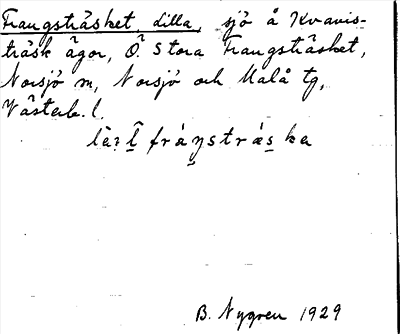 Fraugsträsket, Lilla, sjö å Kvavis-
träsk ägor, Ö. Stora Fraugsträsket,
Norsjö m, Norsjö och Malå tg,
Västerb. l.
B. Nygren 1929